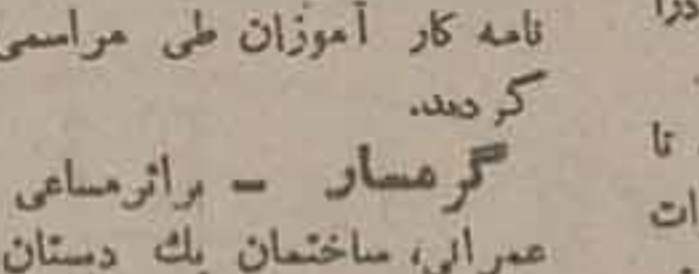 نامه کار آموزان طی مراسمی
کردند.
گرمسار – براثر مساعی
عمرانی، ساختمان یك دستان
تا
ات